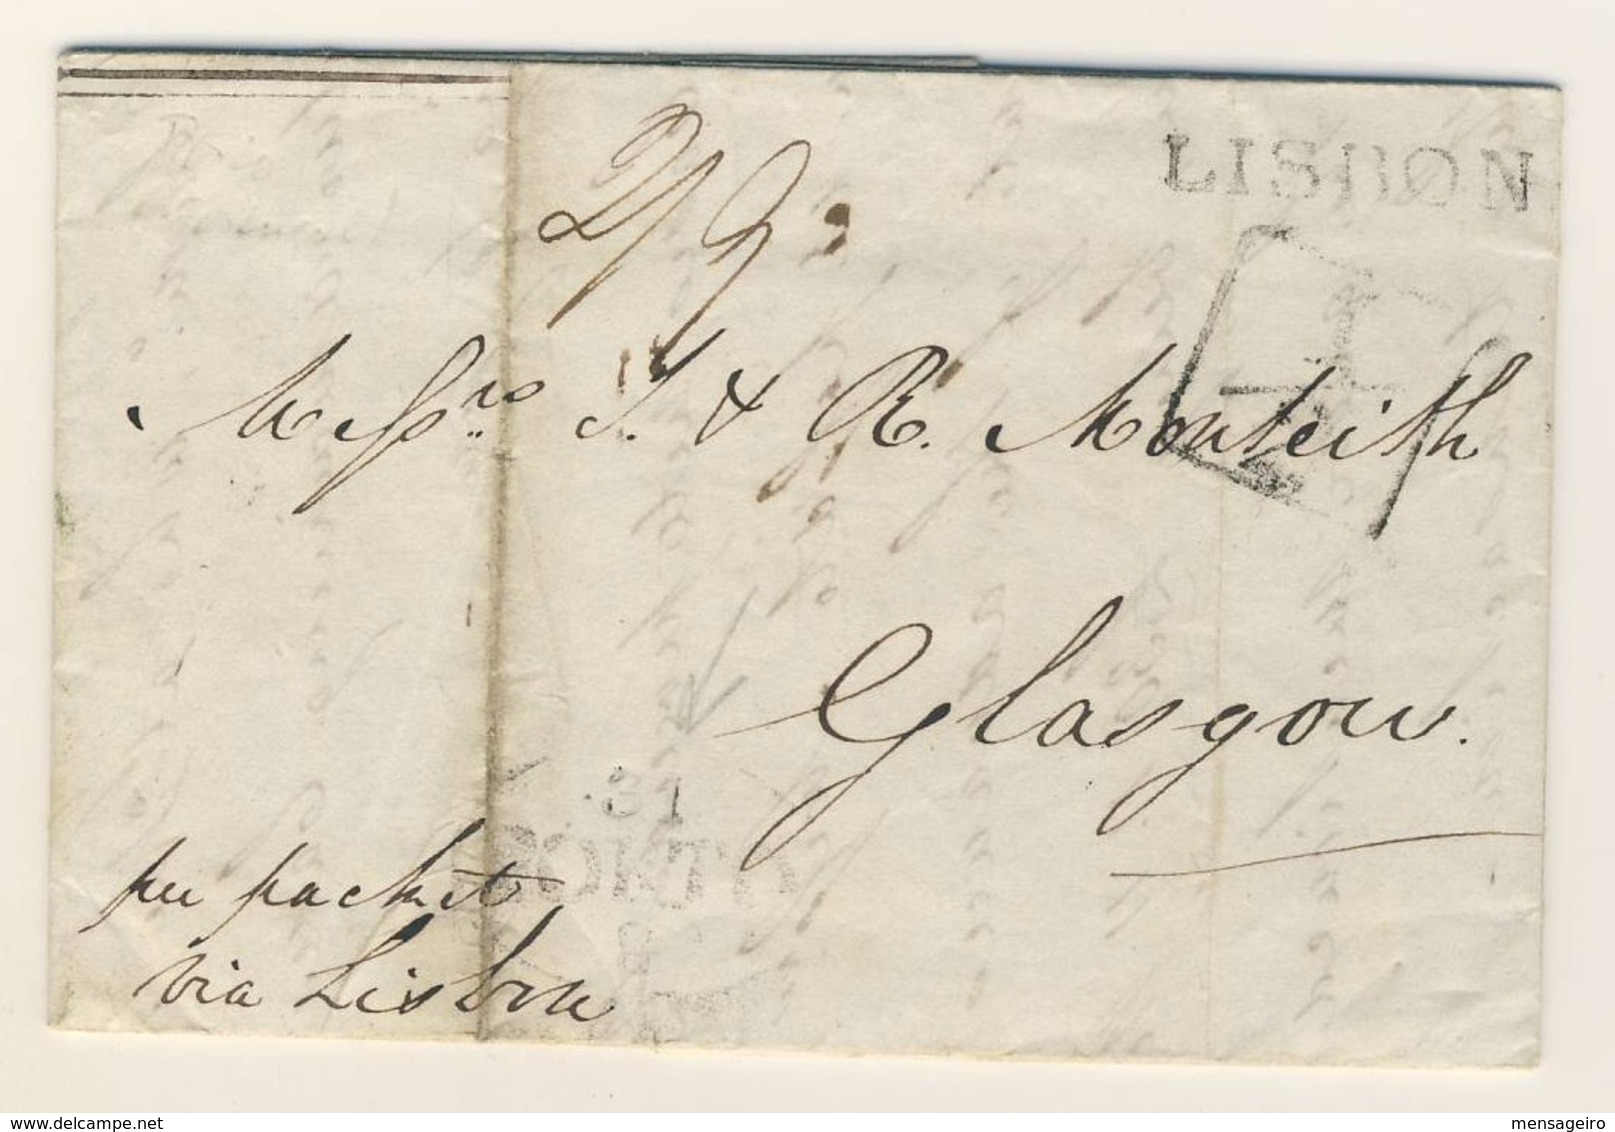 LISBON
2/2
Messrs. J. & R. Monteith
Glasgow.
31
per packet
via Lisbon
delcampe.net
mensageiro